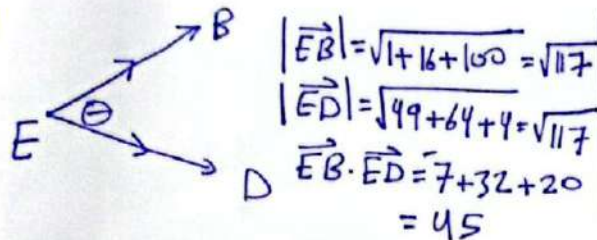 B
|EB| = √1+16+100 = √117
|ED| = √49+64+4 = √117
E θ
D EB · ED = -7+32+20
= 45